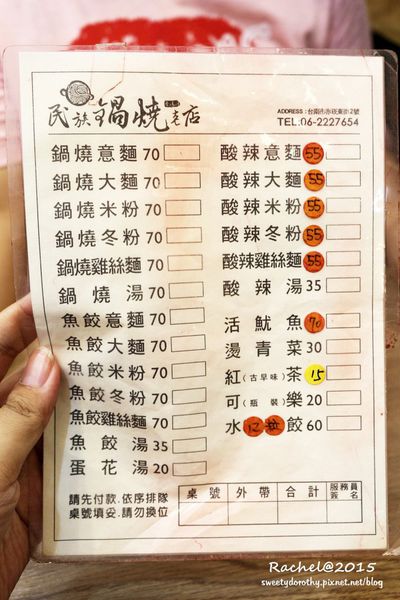 民族鍋燒老店
ADDRESS：台南市赤崁東街2號
TEL:06-2227654
鍋燒意麵 70
鍋燒大麵 70
鍋燒米粉 70
鍋燒冬粉 70
鍋燒雞絲麵 70
鍋燒湯 70
魚餃意麵 70
魚餃大麵 70
魚餃米粉 70
魚餃冬粉 70
魚餃雞絲麵 70
魚餃湯 35
蛋花湯 20
酸辣意麵 55
酸辣大麵 55
酸辣米粉 55
酸辣冬粉 55
酸辣雞絲麵 55
酸辣湯 35
活魷魚 70
燙青菜 30
紅(古早味)茶 15
可(瓶裝)樂 20
水12粒餃 60
請先付款．依序排隊
桌號填妥．請勿換位
桌號 外帶 合計 服務員簽名
Rachel@2015
sweetydorothy.pixnet.net/blog